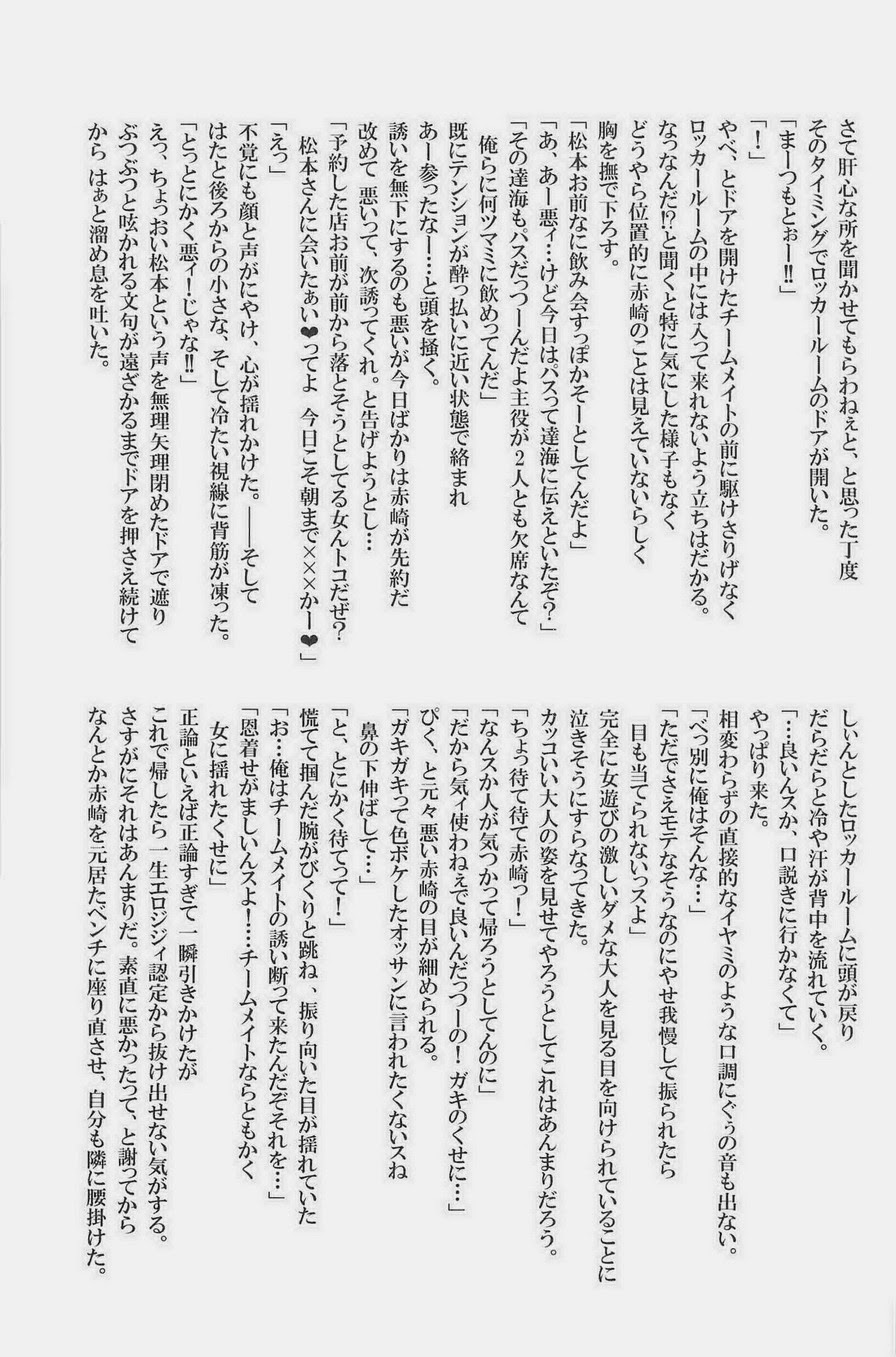 さて肝心な所を聞かせてもらわねぇと、と思った丁度
そのタイミングでロッカールームのドアが開いた。
「まーつもとぉー!!」
「！」
やべ、とドアを開けたチームメイトの前に駆けさりげなく
ロッカールームの中には入って来れないよう立ちはだかる。
なっなんだ!?と聞くと特に気にした様子もなく
どうやら位置的に赤崎のことは見えていないらしく
胸を撫で下ろす。
「松本お前なに飲み会すっぽかそーとしてんだよ」
「あ、あー悪ィ…けど今日はパスって達海に伝えといたぞ？」
「その達海もパスだっつーんだよ主役が2人とも欠席なんて
俺らに何ツマミに飲めってんだ」
既にテンションが酔っ払いに近い状態で絡まれ
あー参ったなー…と頭を掻く。
誘いを無下にするのも悪いが今日ばかりは赤崎が先約だ
改めて 悪いって、次誘ってくれ。と告げようとし…
「予約した店お前が前から落とそうとしてる女んトコだぜ？
松本さんに会いたぁい❤ってよ 今日こそ朝まで×××かー❤」
「えっ」
不覚にも顔と声がにやけ、心が揺れかけた。――そして
はたと後ろからの小さな、そして冷たい視線に背筋が凍った。
「とっとにかく悪ィ！じゃな!!」
えっ、ちょっおい松本という声を無理矢理閉めたドアで遮り
ぶつぶつと呟かれる文句が遠ざかるまでドアを押さえ続けて
から はぁと溜め息を吐いた。
しぃんとしたロッカールームに頭が戻り
だらだらと冷や汗が背中を流れていく。
「…良いんスか、口説きに行かなくて」
やっぱり来た。
相変わらずの直接的なイヤミのような口調にぐぅの音も出ない。
「べっ別に俺はそんな…」
「ただでさえモテなそうなのにやせ我慢して振られたら
目も当てられないっスよ」
完全に女遊びの激しいダメな大人を見る目を向けられていることに
泣きそうにすらなってきた。
カッコいい大人の姿を見せてやろうとしてこれはあんまりだろう。
「ちょっ待て待て赤崎っ！」
「なんスか人が気つかって帰ろうとしてんのに」
「だから気ィ使わねぇで良いんだっつーの！ガキのくせに…」
ぴく、と元々悪い赤崎の目が細められる。
「ガキガキって色ボケしたオッサンに言われたくないスね
鼻の下伸ばして…」
「と、とにかく待てって！」
慌てて掴んだ腕がびくりと跳ね、振り向いた目が揺れていた
「お…俺はチームメイトの誘い断って来たんだぞそれを…」
「恩着せがましいんスよ！……チームメイトならともかく
女に揺れたくせに」
正論といえば正論すぎて一瞬引きかけたが
これで帰したら一生エロジジィ認定から抜け出せない気がする。
さすがにそれはあんまりだ。素直に悪かったって、と謝ってから
なんとか赤崎を元居たベンチに座り直させ、自分も隣に腰掛けた。